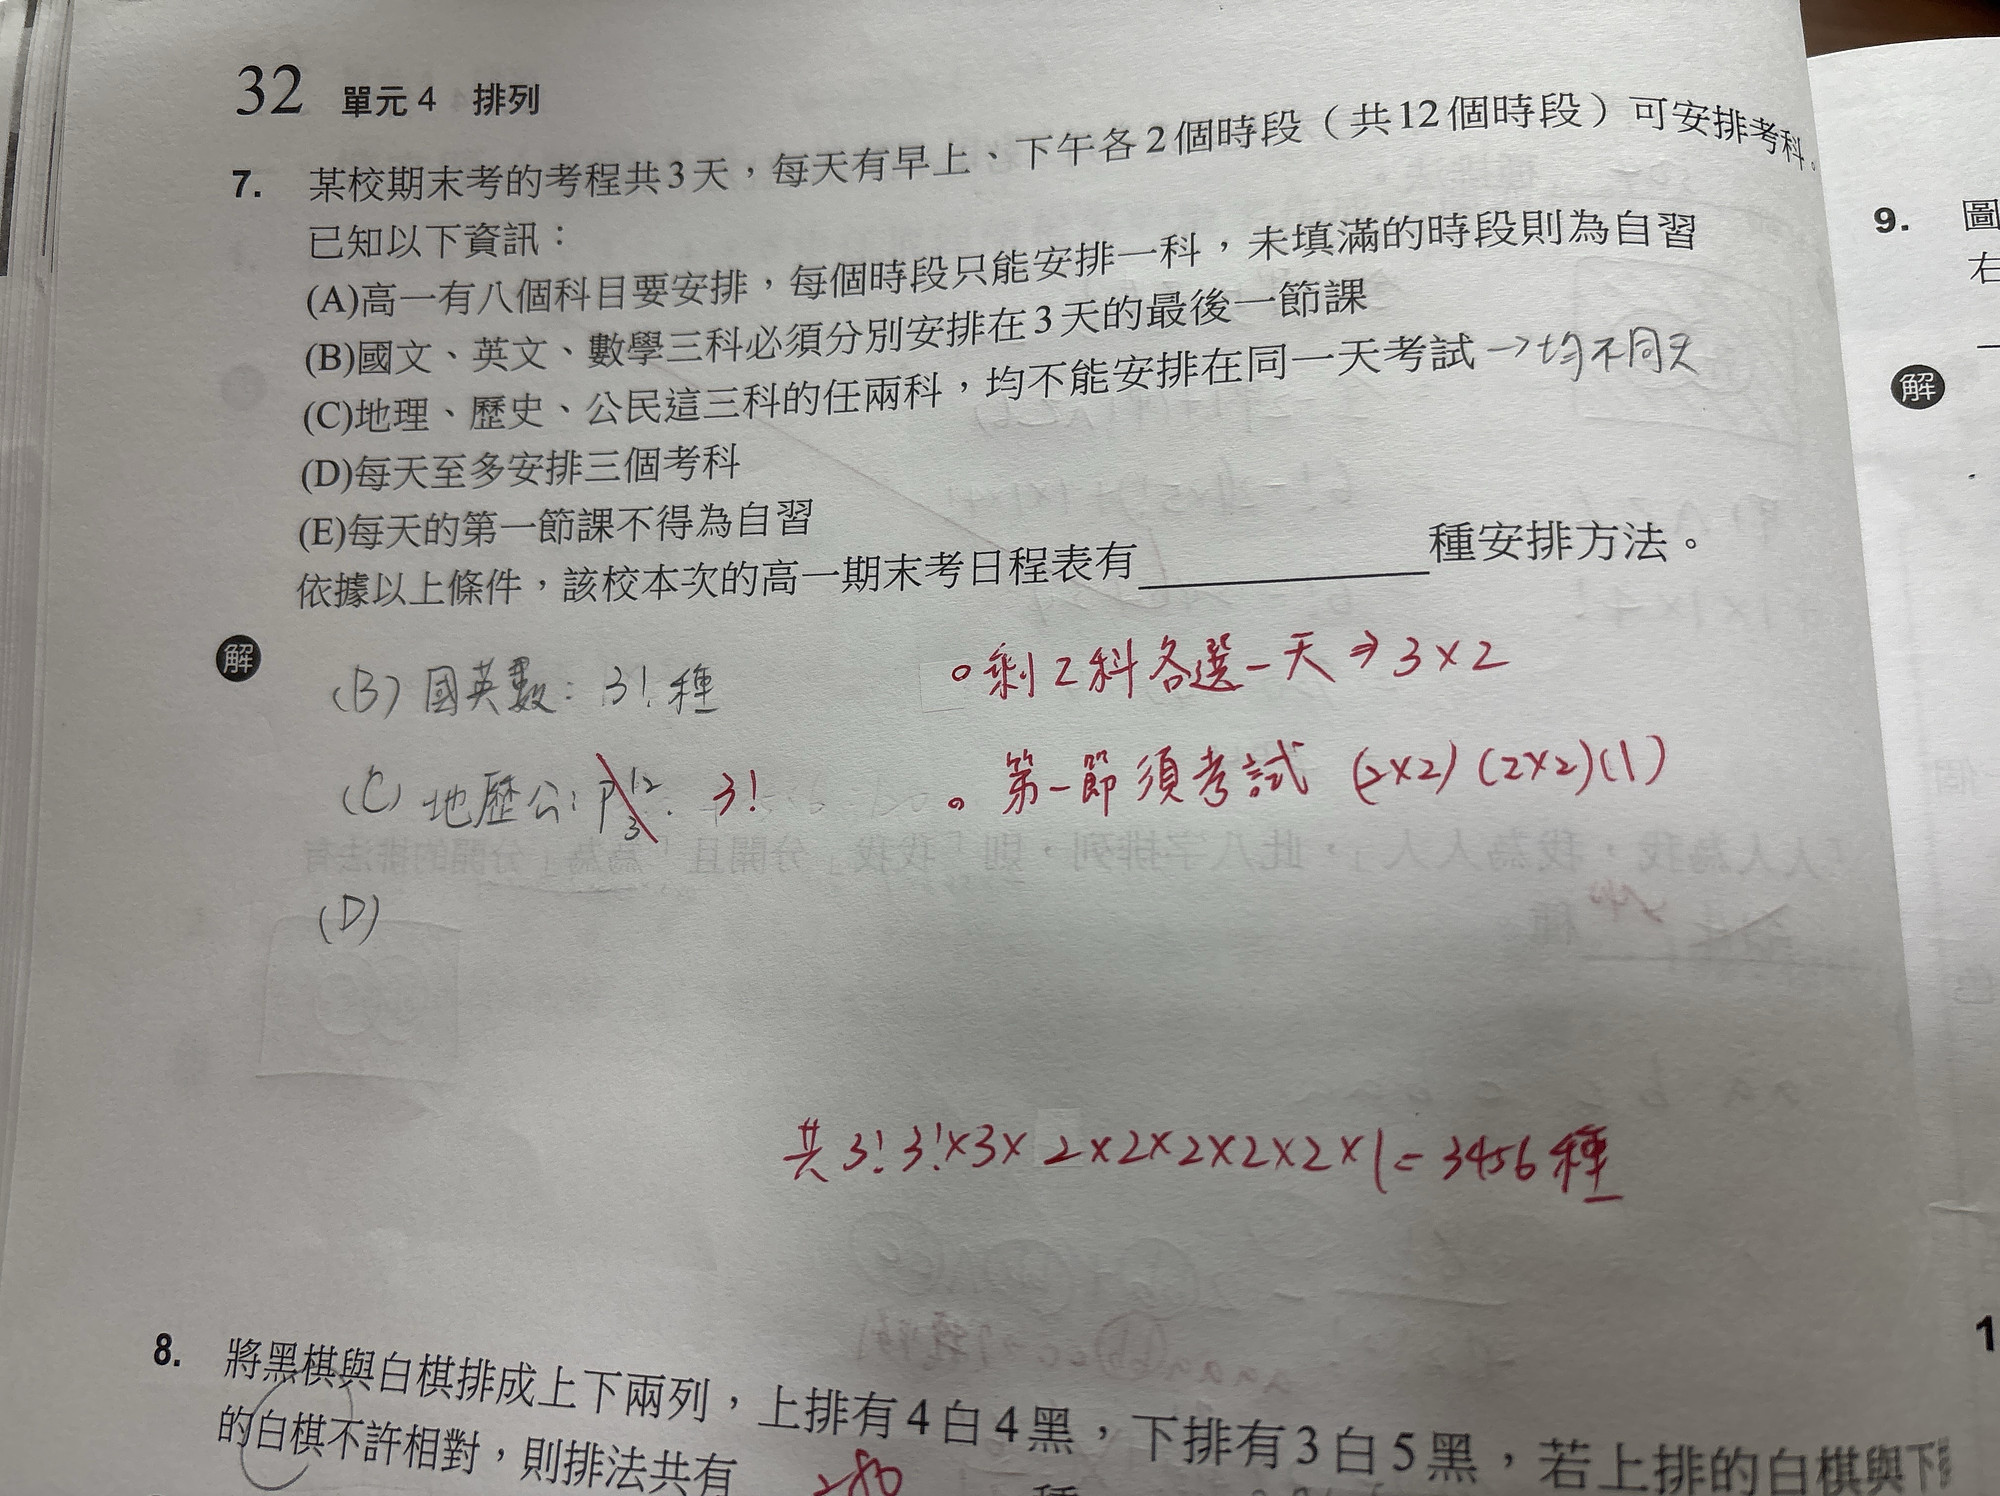 32 單元 4 排列
7. 某校期末考的考程共3天，每天有早上、下午各2個時段（共12個時段）可安排考科。
已知以下資訊：
(A)高一有八個科目要安排，每個時段只能安排一科，未填滿的時段則為自習
(B)國文、英文、數學三科必須分別安排在3天的最後一節課
(C)地理、歷史、公民這三科的任兩科，均不能安排在同一天考試→均不同天
(D)每天至多安排三個考科
(E)每天的第一節課不得為自習
依據以上條件，該校本次的高一期末考日程表有 種安排方法。
解
(B) 國英數：3! 種
。剩2科各選一天⇒3×2
(C) 地歷公：P¹²₃. 3!
。第一節須考試 (2×2)(2×2)(1)
(D)
共3!3!×3×2×2×2×2×2×1=3456種
8. 將黑棋與白棋排成上下兩列，上排有4白4黑，下排有3白5黑，若上排的白棋與下
的白棋不許相對，則排法共有 280 種
9. 圖
右
解
1